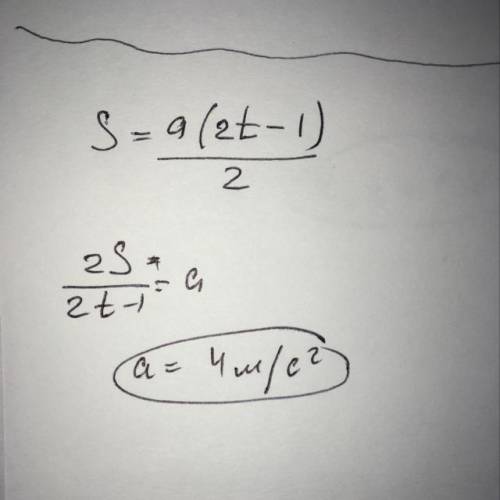 S = a(2t-1)/2
2S/2t-1 = a
a = 4м/с²